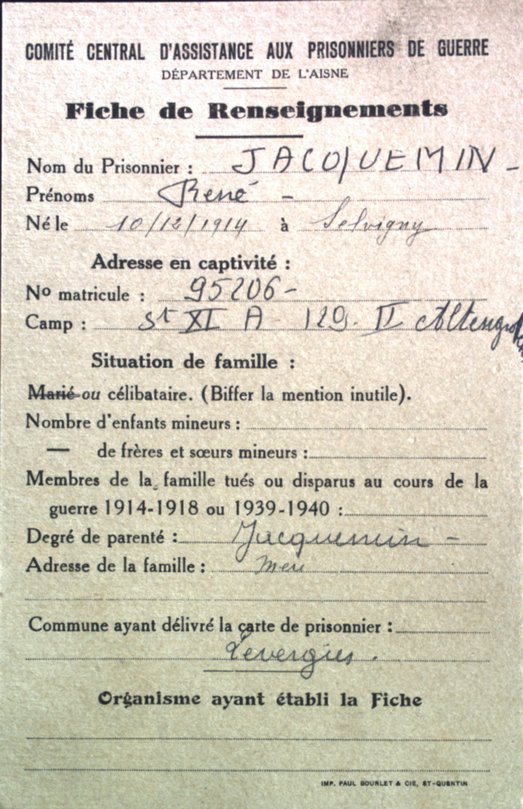 COMITÉ CENTRAL D'ASSISTANCE AUX PRISONNIERS DE GUERRE
DÉPARTEMENT DE L'AISNE
Fiche de Renseignements
Nom du Prisonnier : JACQUEMIN -
Prénoms René -
Né le 10/12/1914 à Selvigny
Adresse en captivité :
No matricule : 95206 -
Camp : St XI A - 129. II
Situation de famille :
Marié ou célibataire. (Biffer la mention inutile).
Nombre d'enfants mineurs :
— de frères et sœurs mineurs :
Membres de la famille tués ou disparus au cours de la
guerre 1914-1918 ou 1939-1940 :
Degré de parenté : Jacquemin -
Adresse de la famille :
Commune ayant délivré la carte de prisonnier :
Levergies.
Organisme ayant établi la Fiche
IMP. PAUL BOURLET & CIE, ST-QUENTIN